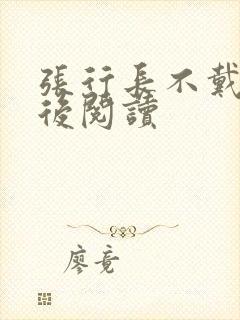 張行長不戴
後閱讀
廖竟